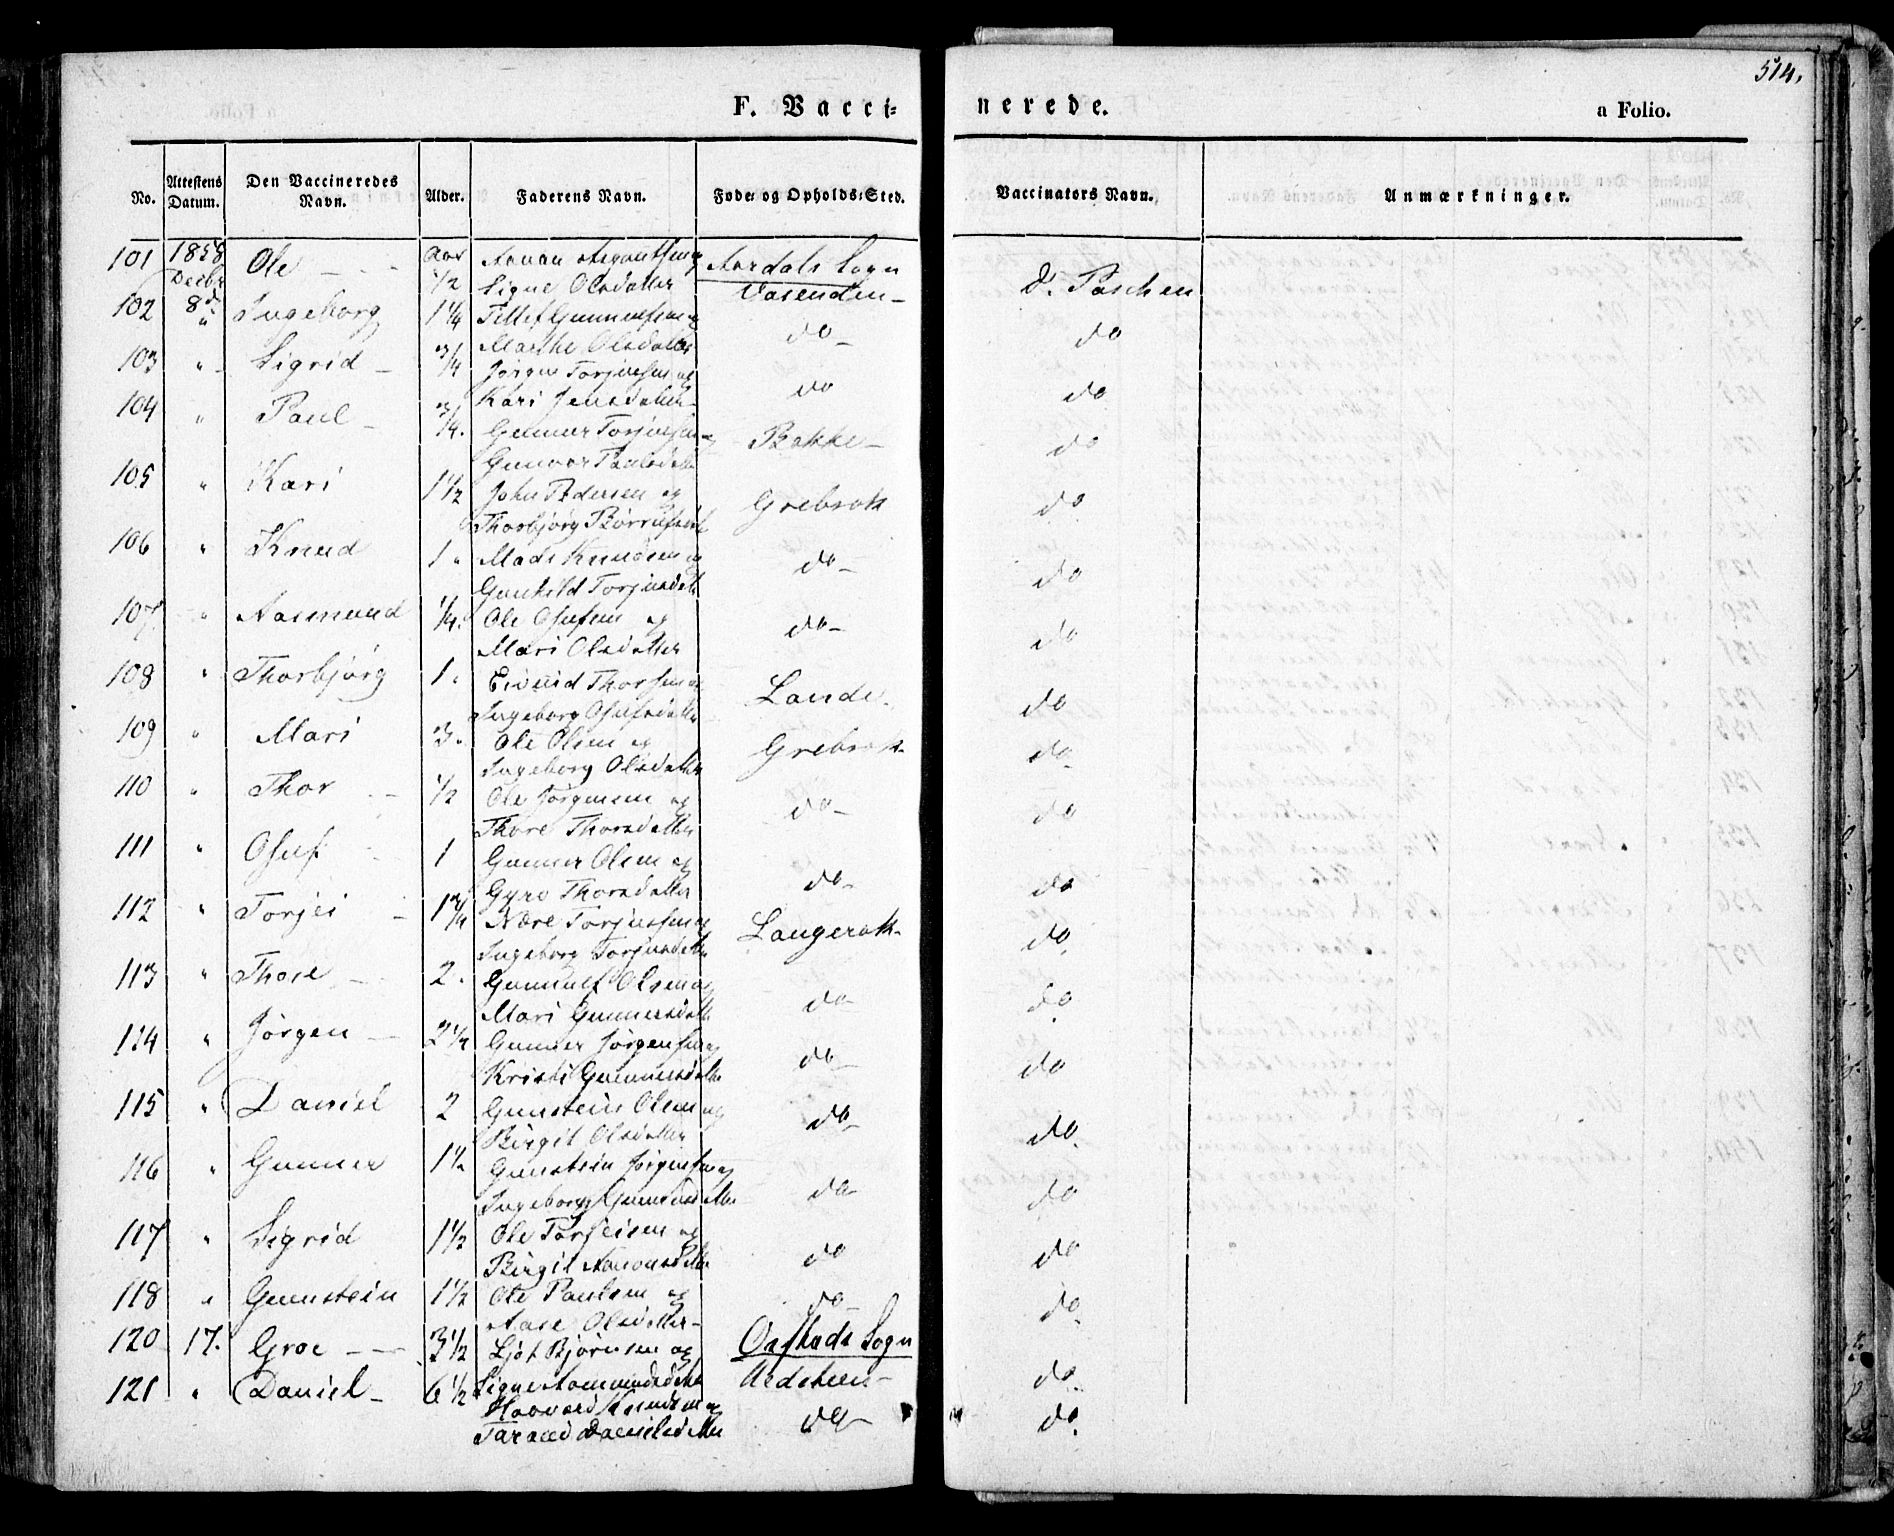 514.
F. Vacci-
nerede.
a Folio.
No. Attestens Datum. Den Vaccineredes Navn. Alder. Faderens Navn. Føde- og Opholds-Sted. Vaccinators Navn. Anmærkninger.
101 1858 Decbr 8d Ole Aar 1/2 Signe Olsdatter Aardals Sogn Vasenden D. Paschen
102 " Ingeborg 1 1/4 Tellef Gunnulfsen og Marthe Olsdatter do do
103 " Sigrid 3/4 Jørgen Torjusen og Kari Jensdatter do do
104 " Paul 3/4. Gunnar Torjusen og Gunvor Paulsdatter Bakke do
105 " Kari 1 1/2 John Pedersen og Thorbjørg do Grebrok do
106 " Knud 1 " Mads Knudsen og Gunhild Torjusdatt do do
107 " Aasmund 1/4. Ole Olufsen og Mari Olsdatter do do
108 " Thorbjørg 1. Eivind Thorsen og Ingeborg Olufsdatter Lande. do
109 " Mari 3. Ole Olsen og Ingeborg Olsdatter Grebrok do
110 " Thor 1/2 Ole Jørgensen og Thore Thorsdatter do do
111 " Oluf 1 Gunner Olsen og Gyro Thorsdatter do do
112 " Torjei 1 3/4 Torjussen og Ingeborg Torjusdatter Langerak do
113 " Thore 2. Gunnulf Olsen og Mari Gunnersdatt do do
114 " Jørgen 2 1/2 Gunner Jørgensen og Kristi Gunnersdatter do do
115 " Daniel 2 Gunstein Olsen og Birgit Olsdatter do do
116 " Gunner 1 1/2 Gunstein Jørgensen og Ingeborg do do
117 " Sigrid 1 1/2 Ole Torjeisen og Birgit do do
118 " Gunstein 1 1/2 Ole Paulsen og Aase Olsdatter do do
120 17. Groe 3 1/2 Ljøt Bjørnsen og Signe Aamundsdatter Sogn do
121 " Daniel 6 1/2 Haavard Knudsen og Taraned Danielsdatter do do